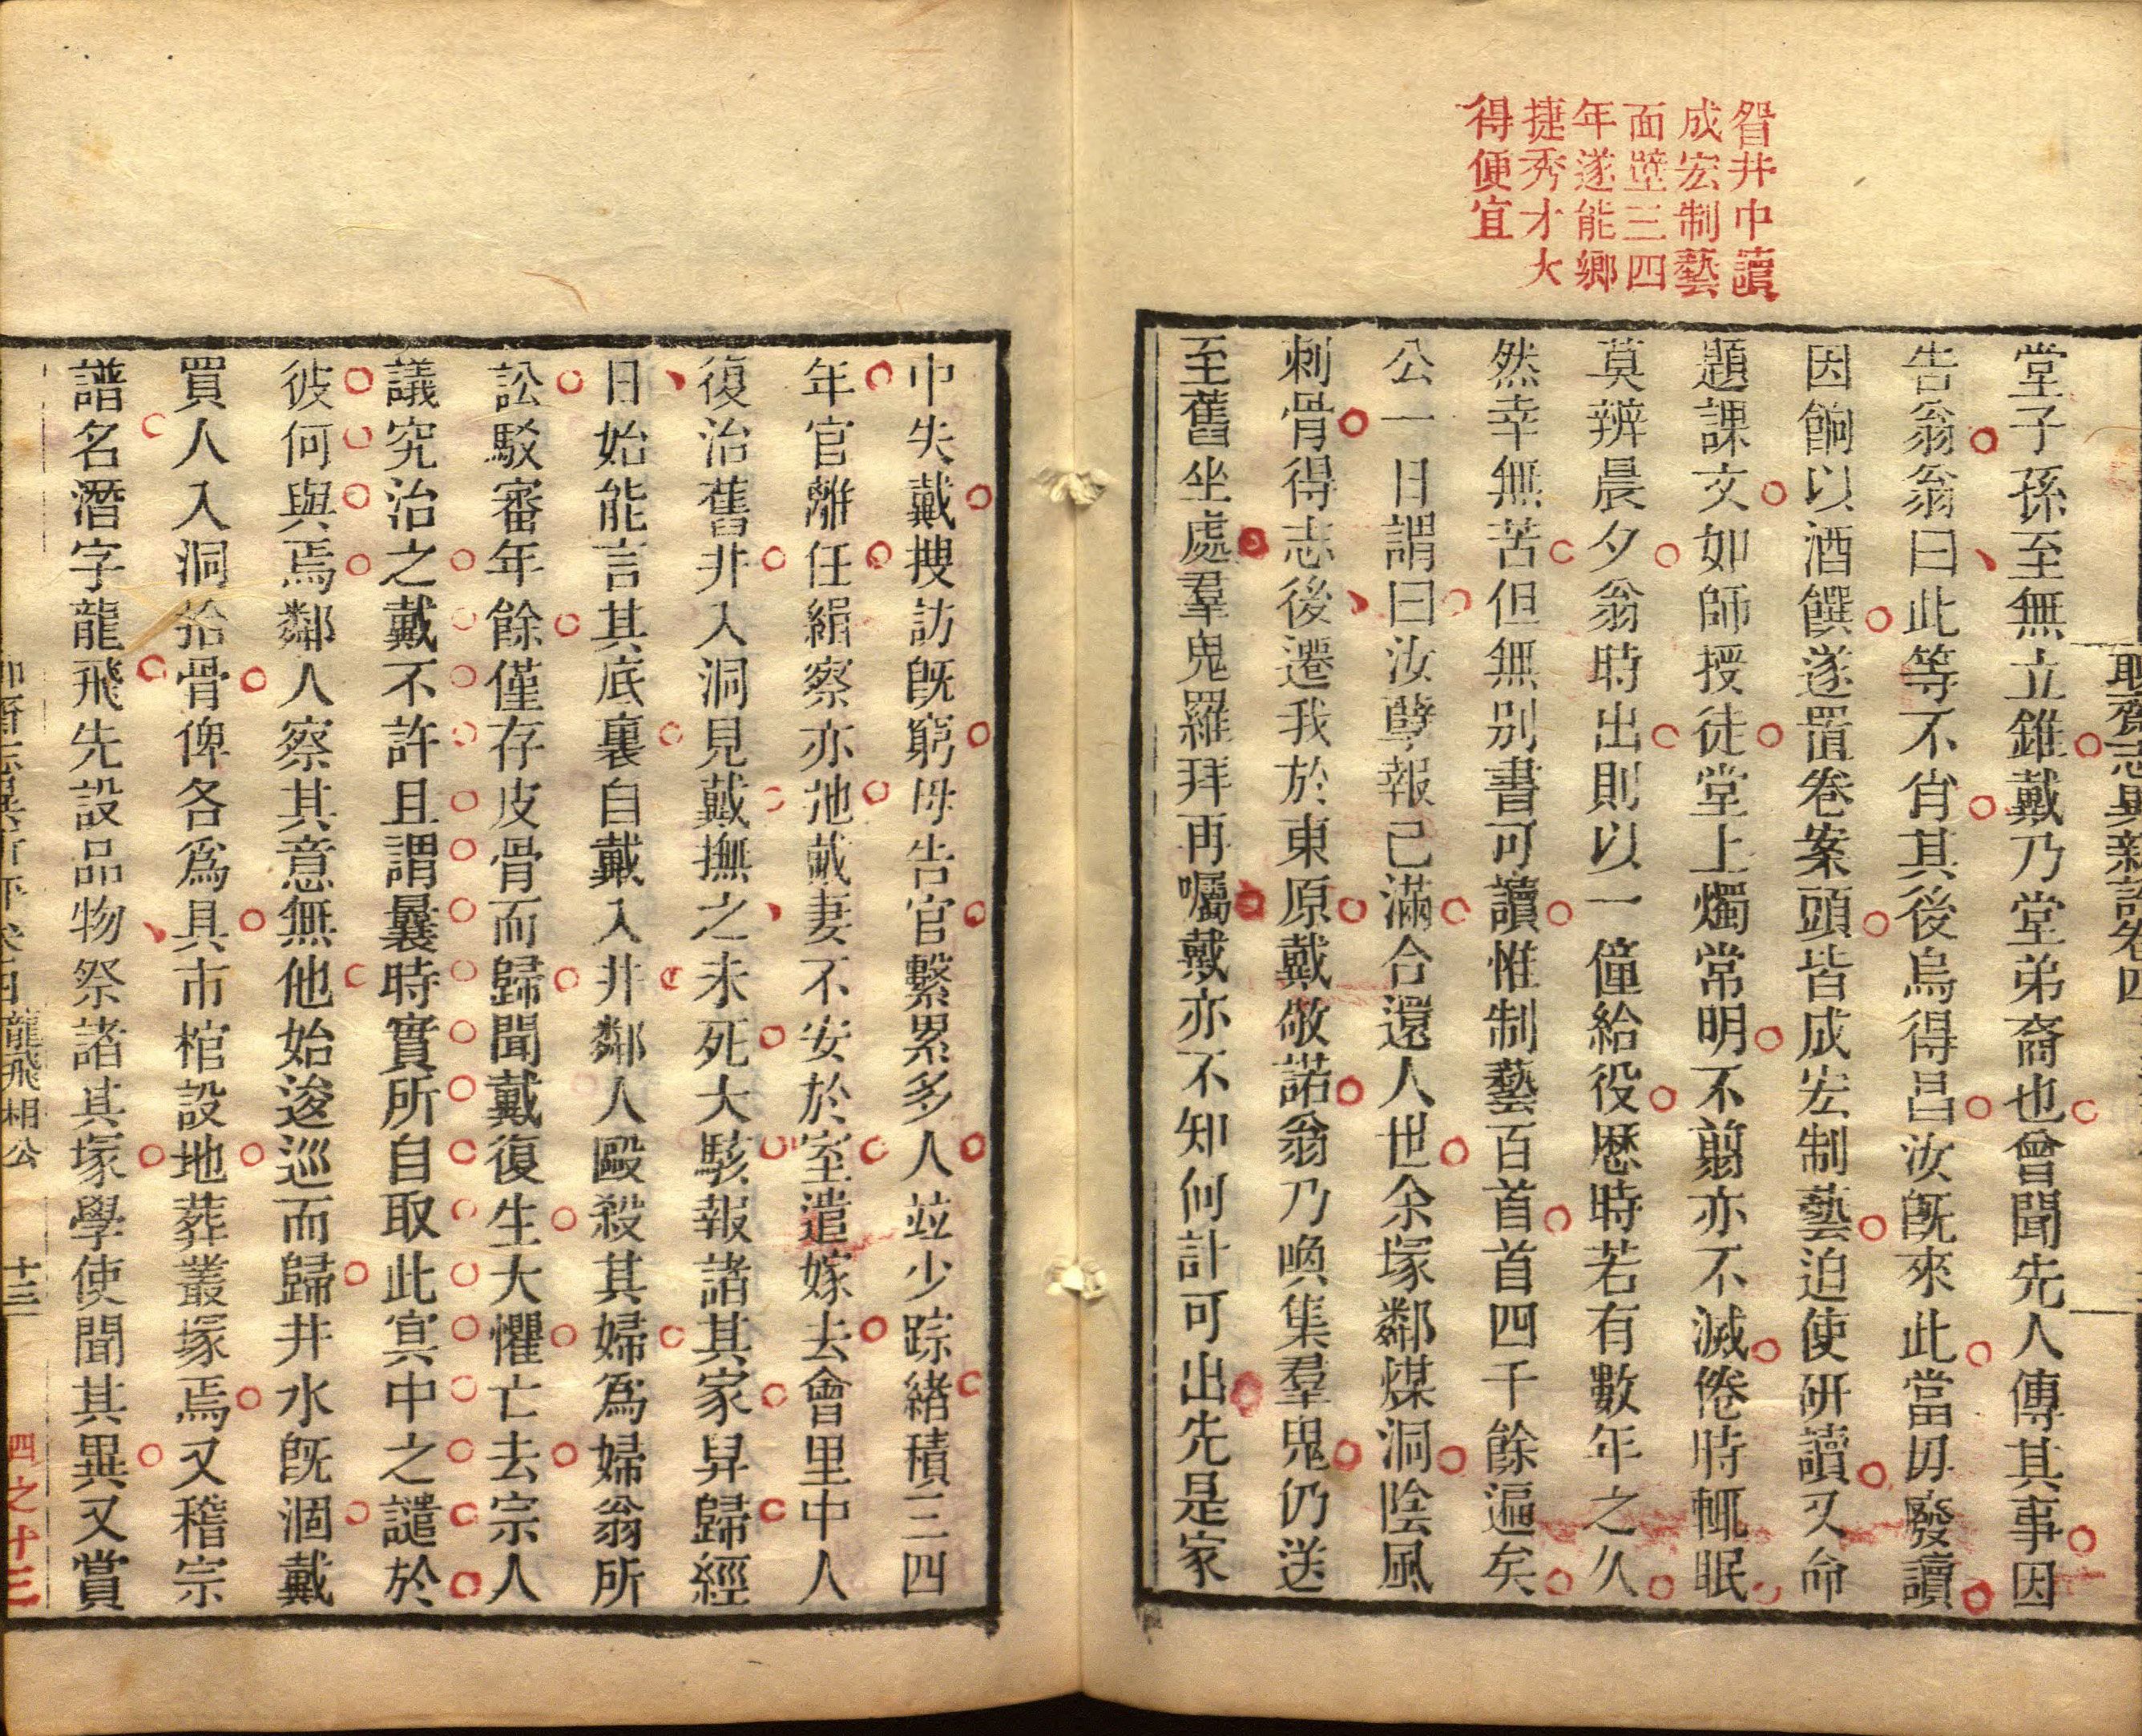 眢井中讀
成宏制藝
面壁三四
年遂能鄉
捷秀才大
得便宜
聊齋志異新評卷四
堂子孫至無立錐戴乃堂弟裔也曾聞先人傳其事因
告翁翁曰此等不肖其後烏得昌汝旣來此當毋廢讀
因餉以酒饌遂置卷案頭皆成宏制藝迫使研讀又命
題課文如師授徒堂上燭常明不翦亦不滅倦時輒眠
莫辨晨夕翁時出則以一僮給役歷時若有數年之久
然幸無苦但無别書可讀惟制藝百首首四千餘遍矣
公一日謂曰汝孽報已滿合還人世余塚鄰煤洞陰風
刺骨得志後遷我於東原戴敬諾翁乃喚集羣鬼仍送
至舊坐處羣鬼羅拜再囑戴亦不知何計可出先是家
中失戴搜訪旣窮母告官繫累多人竝少踪緒積三四
年官離任緝察亦弛戴妻不安於室遣嫁去會里中人
復治舊井入洞見戴撫之未死大駭報諸其家舁歸經
日始能言其底裏自戴入井鄰人毆殺其婦爲婦翁所
訟駁審年餘僅存皮骨而歸聞戴復生大懼亡去宗人
議究治之戴不許且謂曩時實所自取此冥中之譴於
彼何與焉鄰人察其意無他始逡巡而歸井水旣涸戴
買人入洞拾骨俾各爲具市棺設地葬叢塚焉又稽宗
譜名潛字龍飛先設品物祭諸其塚學使聞其異又賞
龍飛相公
十三
四之十三